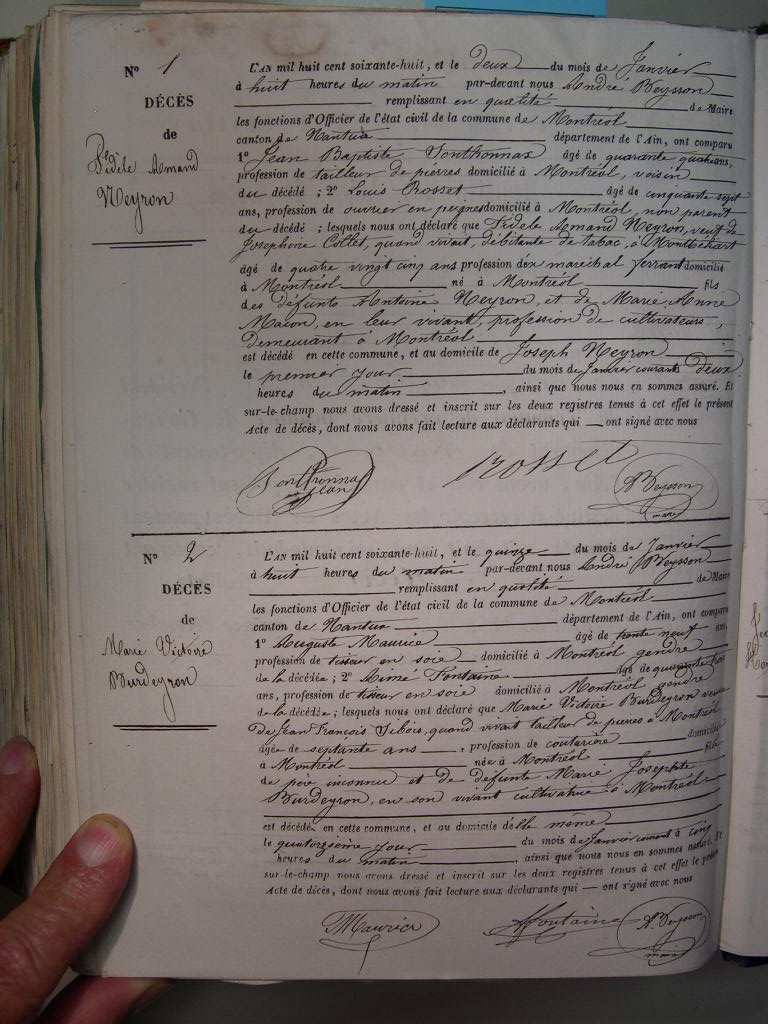 N° 1
DÉCÈS
de
Fidèle Armand
Neyron
L'AN mil huit cent soixante-huit, et le deux du mois de Janvier
à huit heures du matin par-devant nous André Beysson
remplissant en qualité de Maire
les fonctions d'Officier de l'état civil de la commune de Montréol
canton de Nantua département de l'Ain, ont comparu
1° Jean Baptiste Sonthonnax âgé de quarante quatre ans,
profession de tailleur de pierres domicilié à Montréol, voisin
du décédé ; 2° Louis Rosset âgé de cinquante sept
ans, profession de ouvrier en peignes domicilié à Montréol, non parent
du décédé ; lesquels nous ont déclaré que Fidele Armand Neyron, veuf de
Josephine Collet, quand vivait, débitante de tabac, à
âgé de quatre vingt cinq ans profession d'ex marechal ferrant domicilié
à Montréol né à Montréol fils
des défunts Antoine Neyron, et de Marie Anne
Macon, en leur vivant, profession de cultivateurs,
demeurant à Montréol
est décédé en cette commune, et au domicile de Joseph Neyron
le premier jour du mois de Janvier courant à deux
heures du matin, ainsi que nous nous en sommes assuré. Et
sur-le-champ nous avons dressé et inscrit sur les deux registres tenus à cet effet le présent
Acte de décès, dont nous avons fait lecture aux déclarants qui — ont signé avec nous
Sonthonnax Jean
Rosset
A Beysson
maire
N° 2
DÉCÈS
de
Marie Victoire
Burdeyron
L'AN mil huit cent soixante-huit, et le quinze du mois de Janvier
à huit heures du matin par-devant nous André Beysson
remplissant en qualité de Maire
les fonctions d'Officier de l'état civil de la commune de Montréol
canton de Nantua département de l'Ain, ont comparu
1° Auguste Maurice âgé de trente neuf ans,
profession de tisseur en soie domicilié à Montréol gendre
de la décédée ; 2° Aimé Fontaine âgé de quarante trois
ans, profession de tisseur en soie domicilié à Montréol gendre
de la décédée ; lesquels nous ont déclaré que Marie Victoire Burdeyron veuve
de Jean François Sibois, quand vivait tailleur de pierres à Montréol
âgée de septante ans, profession de couturière domiciliée
à Montréol née à Montréol fille
de père inconnu et de défunte Marie Josephte
Burdeyron, en son vivant cultivatrice à Montréol
est décédée en cette commune, et au domicile d'elle meme
le quatorzième jour du mois de Janvier courant à cinq
heures du matin, ainsi que nous nous en sommes assuré. Et
sur-le-champ nous avons dressé et inscrit sur les deux registres tenus à cet effet le présent
Acte de décès, dont nous avons fait lecture aux déclarants qui — ont signé avec nous
Maurice
Fontaine
A. Beysson
maire